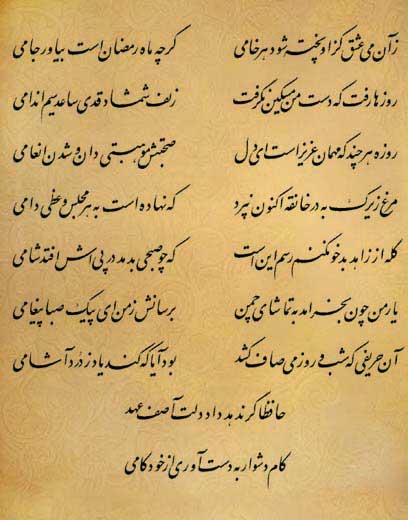 زآن می عشق کزاو پخته شود هر خامی گرچه ماه رمضان است بیاور جامی
روزها رفت که دست من مسکین نگرفت زلف شمشاد قدی ساعد سیم اندامی
روزه هر چند که مهمان عزیز است ای دل صحبتش موهبتی دان و شدن انعامی
مرغ زیرک به در خانقه اکنون نپرد که نهاده است به هر مجلس وعظی دامی
گله از زاهد بدخو نکنم رسم این است که چو صبحی بدمد در پی اش افتد شامی
یار من چون بخرامد به تماشای چمن برسانش ز من ای پیک صبا پیغامی
آن حریفی که شب و روز می صاف کشد بود آیا که کند یاد ز دردآشامی
حافظا گر ندهد داد دلت آصف عهد
کام دشوار به دست آوری از خودکامی